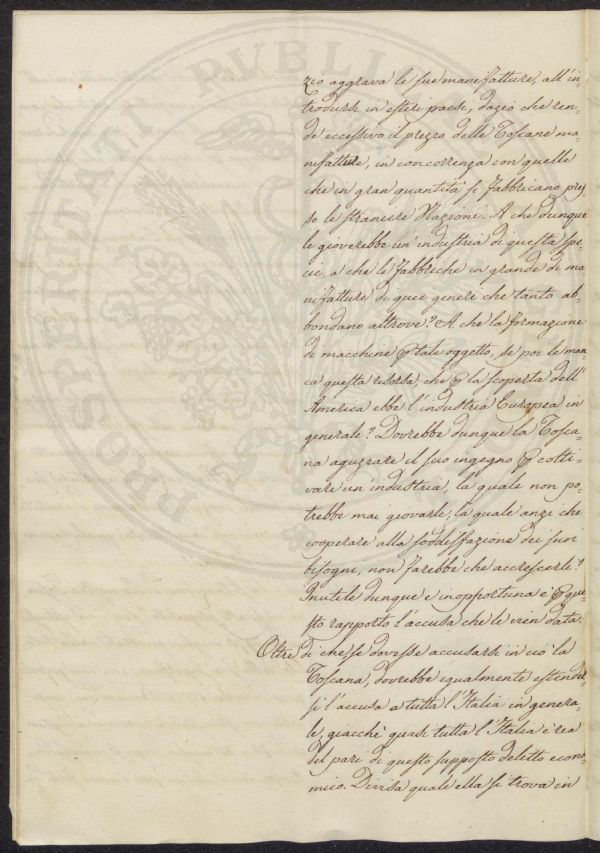 zio aggrava le sue manifatture, all'in-
trodursi in esteri paesi, dazio che ren-
de eccessivo il prezzo delle Toscane ma-
nifatture, in concorrenza con quelle
che in gran quantità si fabbricano pres-
so le straniere Nazioni. A che dunque
le gioverebbe un'industria di questa spe-
cie, a che le fabbriche in grande di ma-
nifatture di quei generi che tanto ab-
bondano altrove? A che la formazione
di macchine p tale oggetto, se poi le man-
ca questa risorsa, che p la scoperta dell'
America ebbe l'industria Europea in
generale? Dovrebbe dunque la Tosca-
na aguzzare il suo ingegno p colti-
vare un'industria, la quale non po-
trebbe mai giovarle, la quale anzi che
cooperare alla soddisffazione dei suoi
bisogni, non farebbe che accrescerli?
Inutile dunque e inopportuna è p que-
sto rapporto l'accusa che le vien data.
Oltre di che se dovesse accusarsi in ciò la
Toscana, dovrebbe egualmente estender-
si l'accusa a tutta l'Italia in genera-
le, giacchè quasi tutta l'Italia è rea
del pari di questo supposto delitto econo-
mico. Divisa quale ella si trova in
PROSPERITATI PVBLI